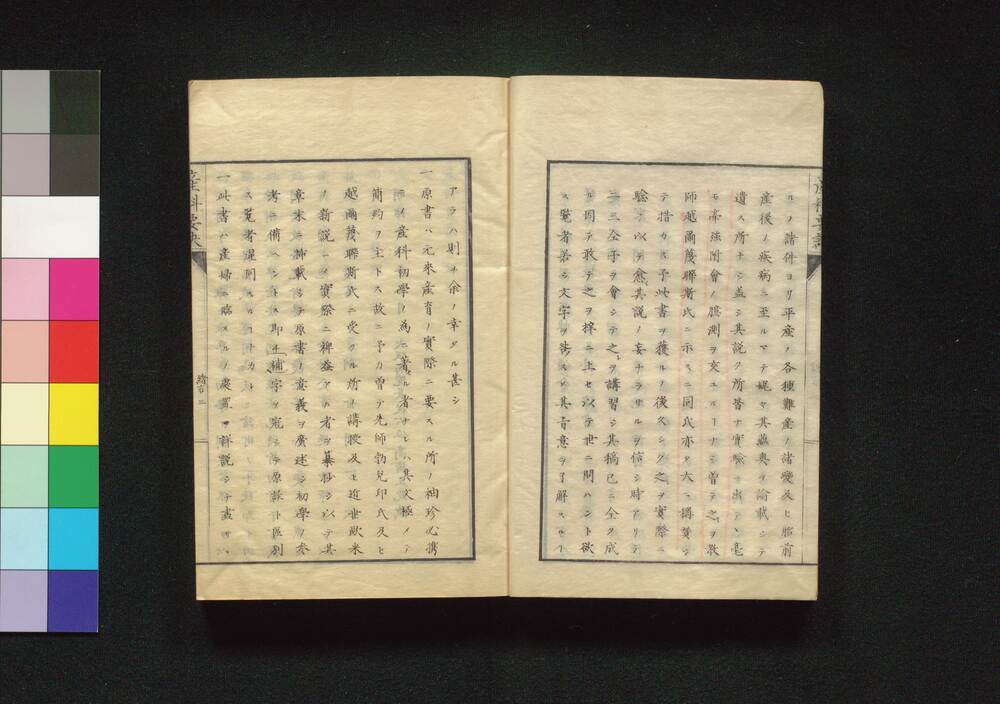 ルノ諸件ヨリ平産ノ各種難産ノ諸變及ヒ胎前
産後ノ疾病ニ至ルマテ娓々其蘊奥ヲ論載シテ
遺ス所ナシ蓋シ其説ク所皆ナ實驗ニ出テヽ毫
モ牽強附會ノ臆測ヲ交エルヿナシ曽テ之ヲ教
師越爾蔑聯斯氏ニ示スニ同氏亦タ大ニ稱賛シ
テ措カス予此書ヲ獲ルノ後久シク之ヲ實際ニ
驗シ以テ愈其説ノ妄ナラサルヲ信シ時アリテ
二三全子ヲ會シテ之ヲ講習シ其稿已ニ全ク成
ル因テ敢テ之ヲ梓ニ上セ以テ世ニ問ハント欲
ス覧者若シ文字ヲ咎メス其旨意ヲ了解スルヿ
アラハ則チ余ノ幸タル甚シ
一原書ハ元來産育ノ實際ニ要スル所ノ袖珍必携
ニシテ産科初學ノ為ニ著セル者ナレハ其文極メテ
簡約ヲ主トス故ニ予カ曽テ先師勃兒印氏及ヒ
越爾蔑聯斯氏ニ受クル所ノ講教及ヒ近世歐米
ノ新説ニメ實際ニ裨益アル者ヲ纂抄シ以テ其
章末ニ挿載シテ原書ノ意義ヲ廣述シ初學ノ参
考ニ備ヘントス即チ補字ヲ冠シテ原譯ト區別
ス覧者混同スルコトナカレ
一此書ハ産婦ニ臨ムルノ處置ヲ詳説シテ盡サヽ
産科要訣
緒言二